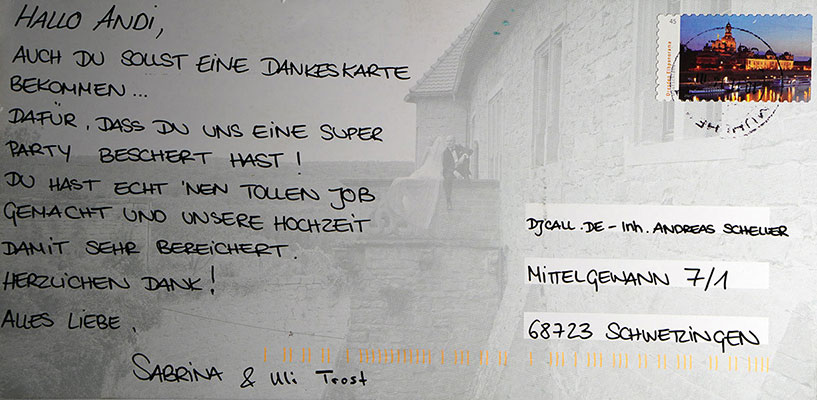 HALLO ANDI,
AUCH DU SOLLST EINE DANKESKARTE
BEKOMMEN...
DAFÜR, DASS DU UNS EINE SUPER
PARTY BESCHERT HAST!
DU HAST ECHT 'NEN TOLLEN JOB
GEMACHT UND UNSERE HOCHZEIT
DAMIT SEHR BEREICHERT.
HERZLICHEN DANK!
ALLES LIEBE,
SABRINA & Uli Trost
45
DJCALL.DE - Inh. ANDREAS SCHELLER
MITTELGEWANN 7/1
68723 SCHWETZINGEN